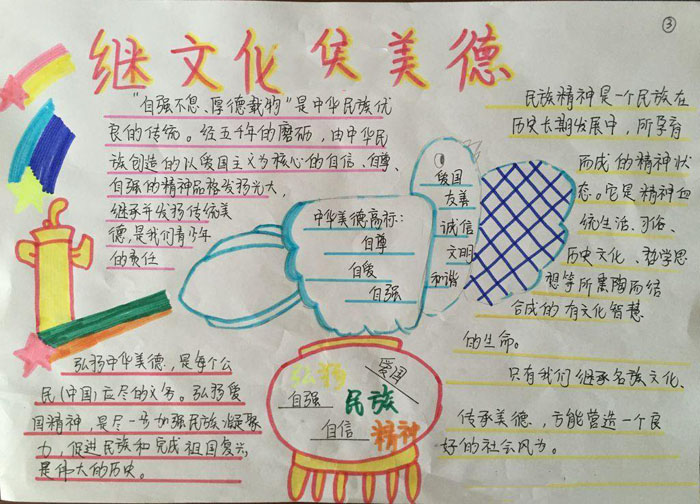 ③
继文化 侯美德
"自强不息、厚德载物"是中华民族优
良的传统。经五千年的磨砺，由中华民
族创造的以爱国主义为核心的自信、自尊、
自强的精神品格发扬光大，
继承并发扬传统美
德，是我们青少年
的责任
弘扬中华美德，是每个公
民(中国)应尽的义务。弘扬爱
国精神，是尽一步加强民族凝聚
力，促进民族和完成祖国复兴
是伟大的历史。
中华美德高标：
自尊
自爱
自强
爱国
友善
诚信
文明
和谐
弘扬
爱国
自强
民族
自信
精神
民族精神是一个民族在
历史长期发展中，所孕育
而成的精神状
态。它是精神血
统生活、习俗、
历史文化、哲学思
想等所熏陶而结
合成的有文化智慧
的生命。
只有我们继承名族文化、
传承美德，方能营造一个良
好的社会风力。